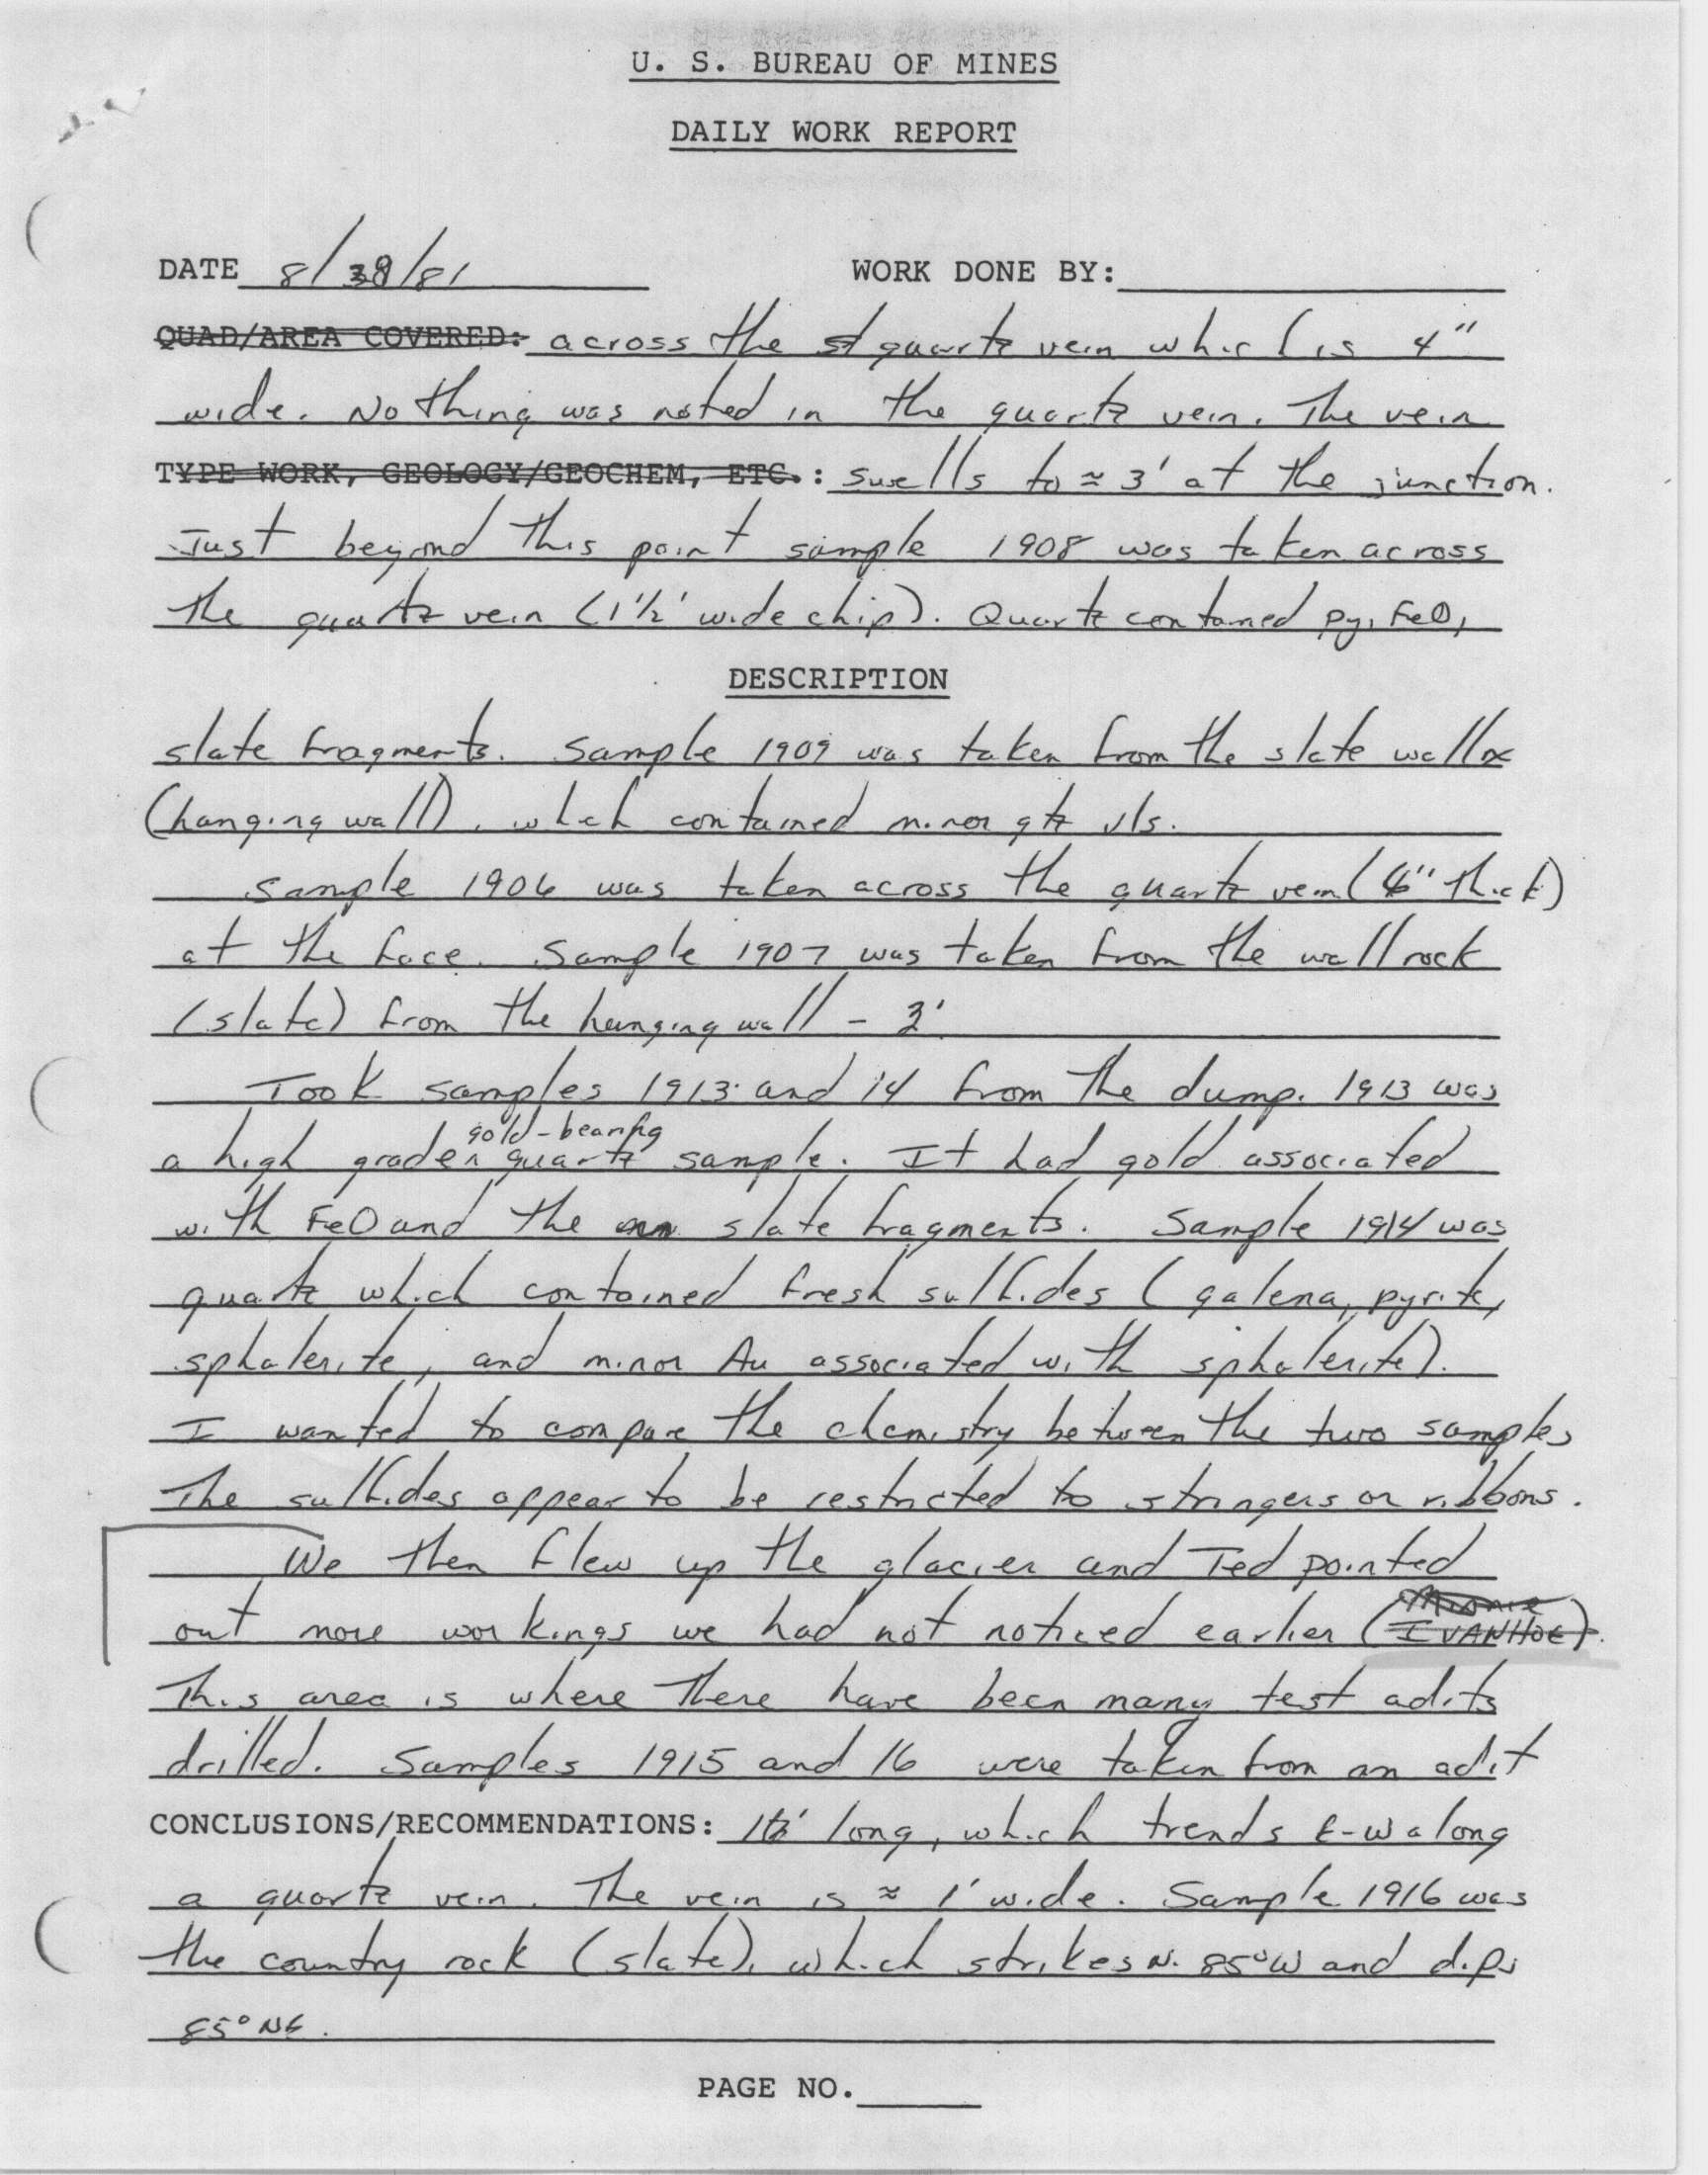 U. S. BUREAU OF MINES
DAILY WORK REPORT
DATE 8/38/81 WORK DONE BY:
QUAD/AREA COVERED: across the st quartz vein which is 4"
wide. Nothing was noted in the quartz vein. The vein
TYPE WORK, GEOLOGY/GEOCHEM, ETC.: swells to ≈ 3' at the junction.
Just beyond this point sample 1908 was taken across
the quartz vein (1½' wide chip). Quartz contained py, FeO,
DESCRIPTION
slate fragments. Sample 1909 was taken from the slate wallrx
(hanging wall), which contained minor qtz vls.
Sample 1906 was taken across the quartz vein (6" thick)
at the face. Sample 1907 was taken from the wall rock
(slate) from the hanging wall - 3'
Took samples 1913 and 14 from the dump. 1913 was
gold-bearing
a high grade quartz sample. It had gold associated
with FeO and the slate fragments. Sample 1914 was
quartz which contained fresh sulfides (galena, pyrite,
sphalerite, and minor Au associated with sphalerite).
I wanted to compare the chemistry between the two samples
The sulfides appear to be restricted to stringers or ribbons.
We then flew up the glacier and Ted pointed
out more workings we had not noticed earlier (IVANHOE).
This area is where there have been many test adits
drilled. Samples 1915 and 16 were taken from an adit
CONCLUSIONS/RECOMMENDATIONS: long, which trends E-W along
a quartz vein. The vein is ≈ 1' wide. Sample 1916 was
the country rock (slate), which strikes N. 85°W and dips
85° NE.
PAGE NO.